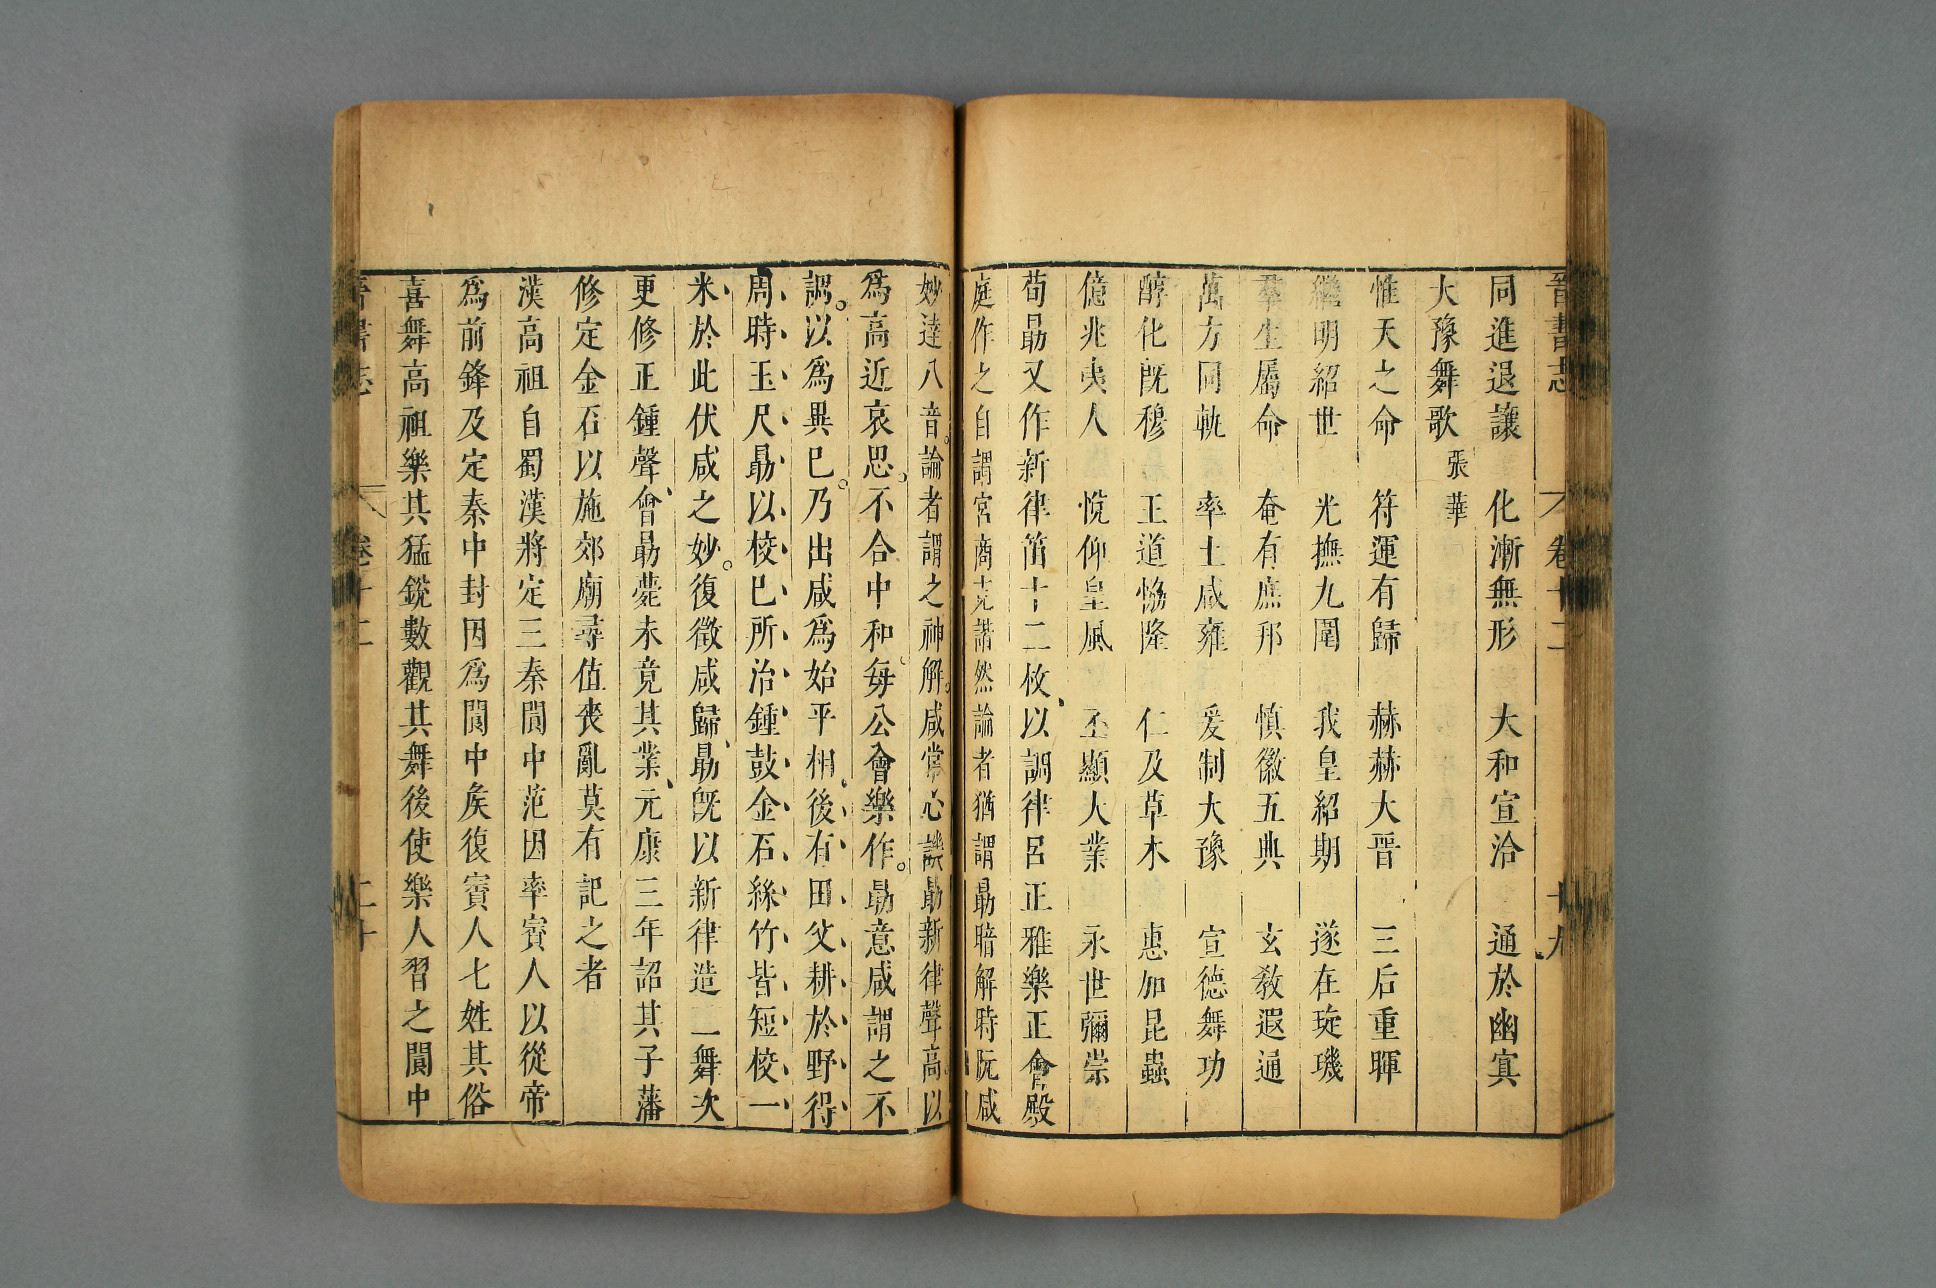 晉書志 卷十二 十九
同進退讓 化漸無形 大和宣洽 通於幽寘
大豫舞歌 張華
惟天之命 符運有歸 赫赫大晉 三后重暉
繼明紹世 光撫九圍 我皇紹期 遂在琁璣
羣生屬命 奄有庶邦 慎徽五典 玄敎遐通
萬方同軌 率土咸雍 爰制大豫 宣德舞功
醇化旣穆 王道恊隆 仁及草木 惠加昆蟲
億兆夷人 悅仰皇風 丕顯大業 永世彌崇
荀勗又作新律笛十二枚以調律呂正雅樂正會殿
庭作之自謂宮商克諧然論者猶謂勗暗解時阮咸
妙達八音論者謂之神解咸常心譏勗新律聲高以
爲高近哀思不合中和每公會樂作勗意咸謂之不
調以爲異己乃出咸爲始平相後有田父耕於野得
周時玉尺勗以校巳所治鍾鼓金石絲竹皆短校一
米於此伏咸之妙復徵咸歸勗旣以新律造二舞次
更修正鍾聲會勗薨未竟其業元康三年詔其子藩
修定金石以施郊廟尋値喪亂莫有記之者
漢高祖自蜀漢將定三秦閬中范因率賨人以從帝
爲前鋒及定秦中封因爲閬中矦復賨人七姓其俗
喜舞高祖樂其猛銳數觀其舞後使樂人習之閬中
晉書志 卷十二 二十